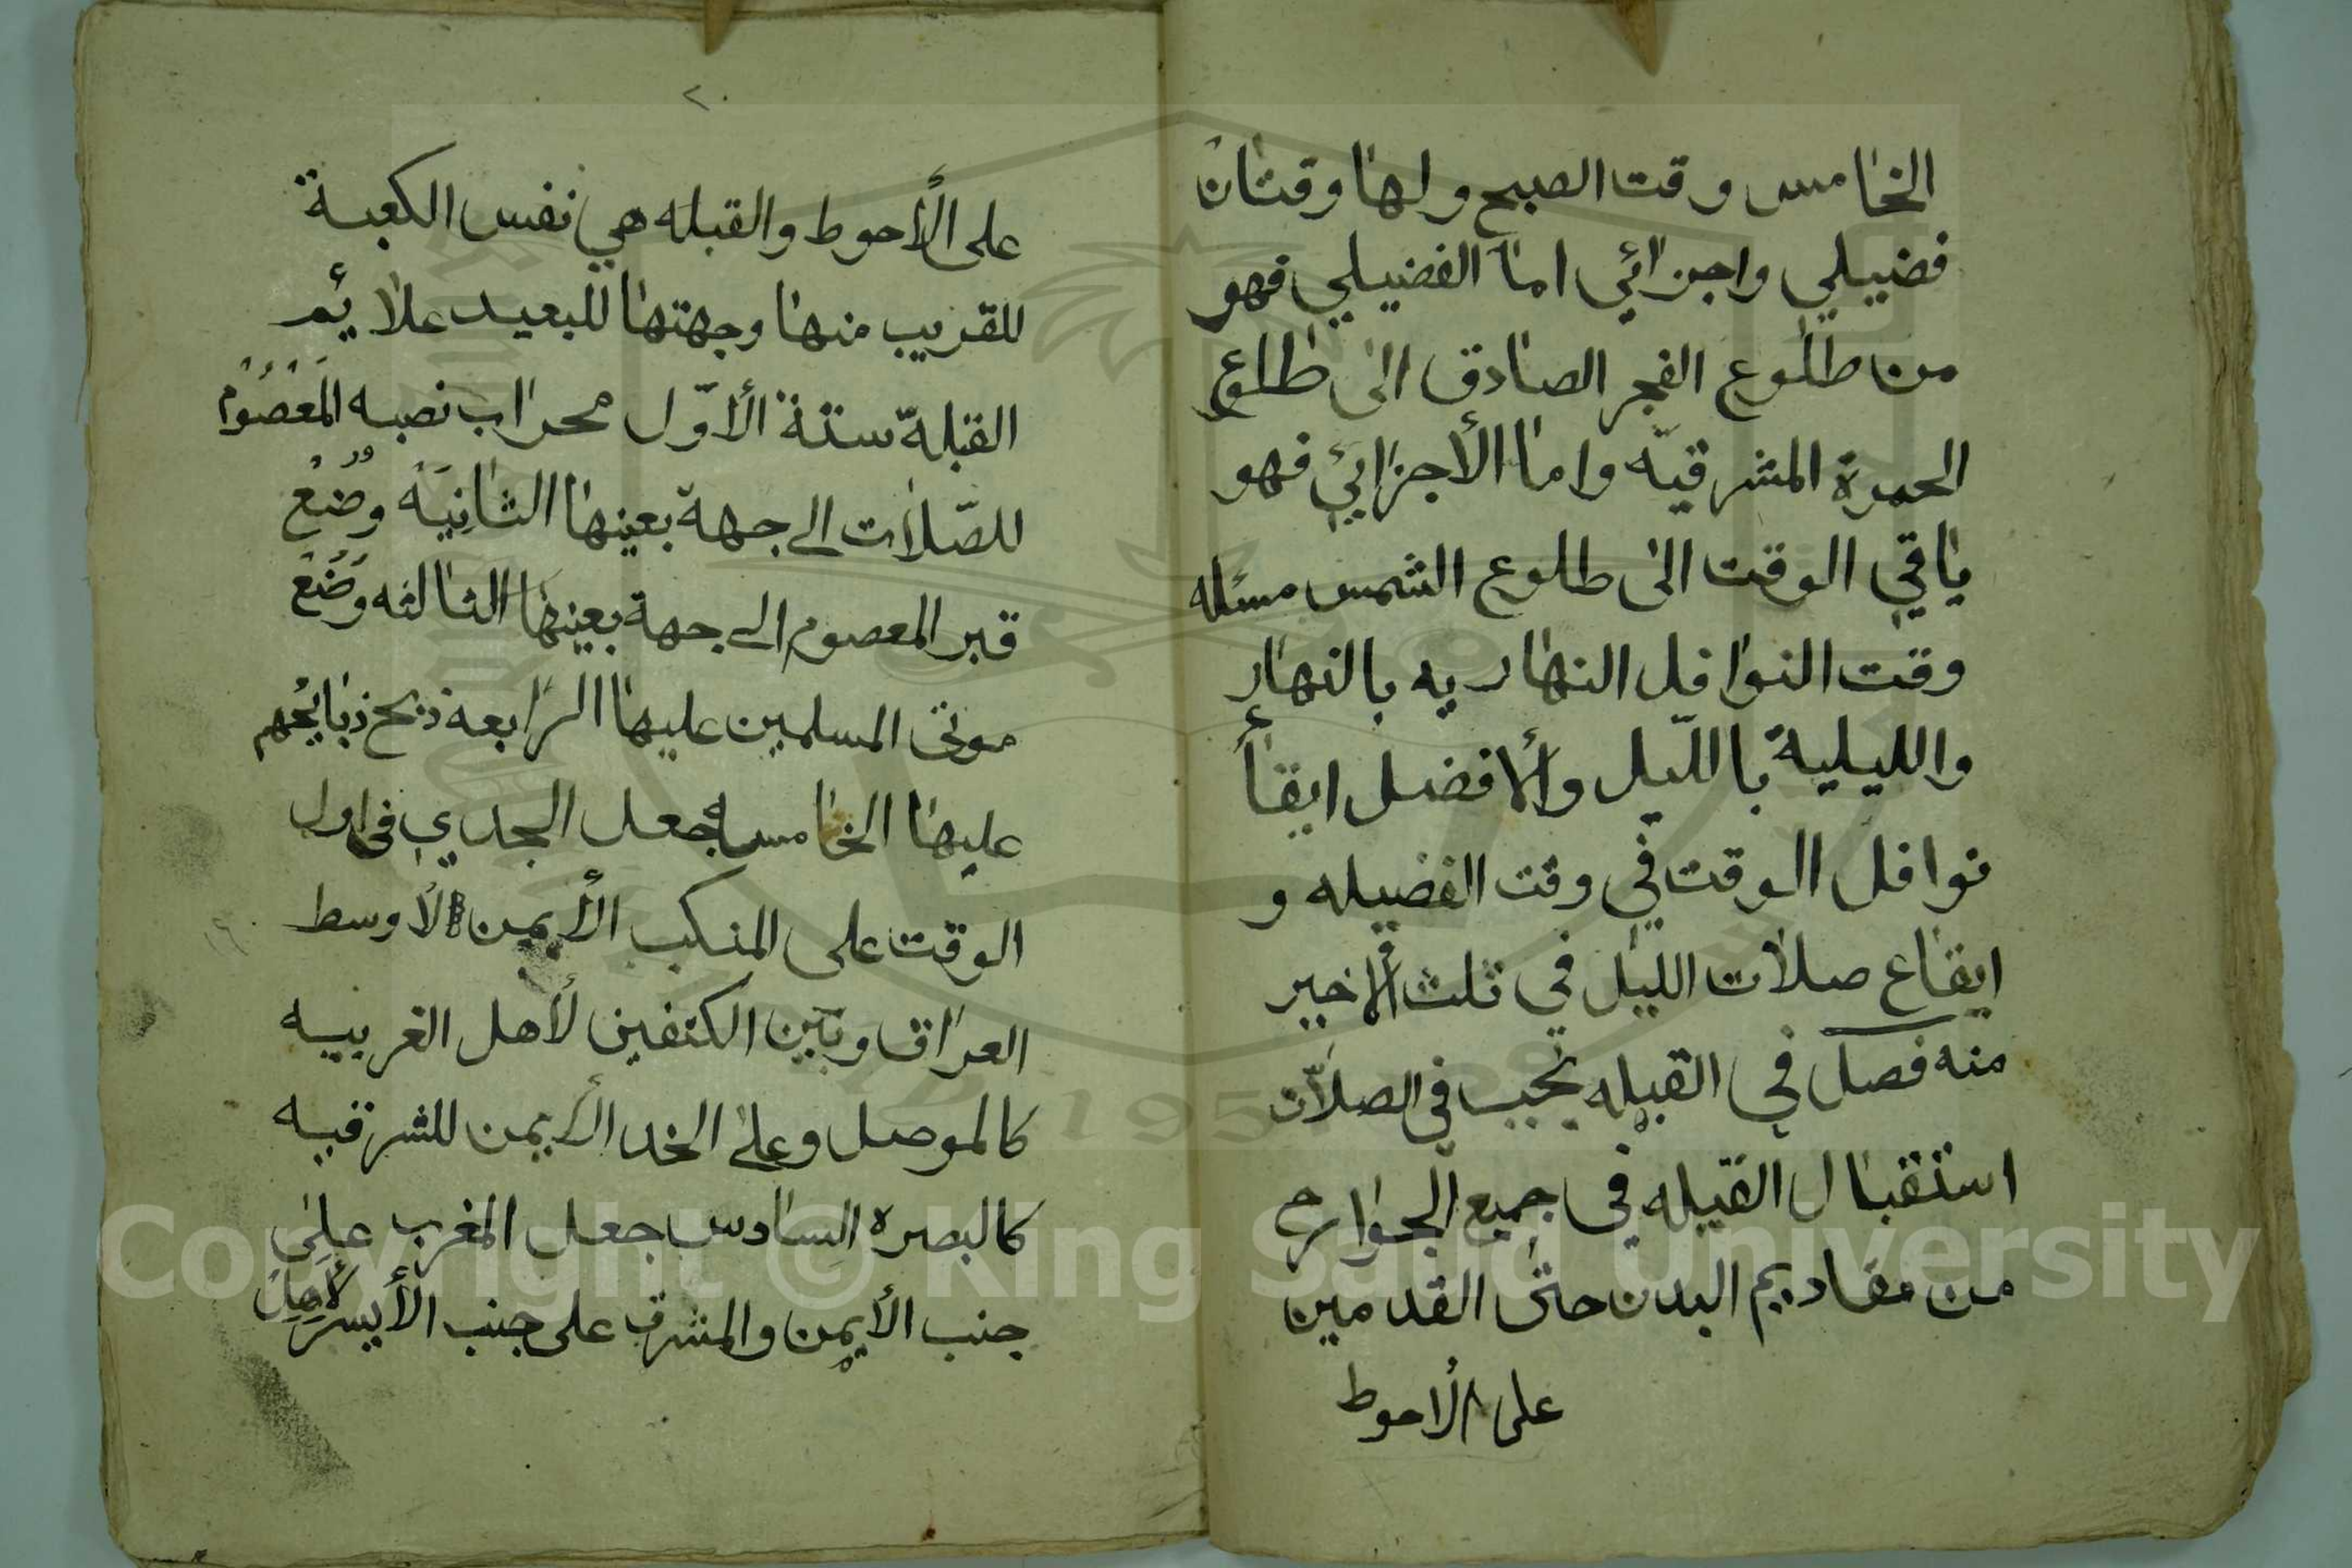 الخامس وقت الصبح ولها وقتان
فضيلي واجزائي اما الفضيلي فهو
من طلوع الفجر الصادق الى طلوع
الحمرة المشرقيّه واما الأجزائي فهو
ياقي الوقت الى طلوع الشمس مسئله
وقت النوافل النهاريه بالنهار
والليلية باللّيل والأفضل ايقاع
نوافل الوقت في وقت الفضيله و
ايقاع صلات الليل في ثلث الاخير
منه فصل في القبله تجب في الصلات
استقبال القبله في جميع الجوارح
من مقاديم البدن حتى القدمين
على الاحوط
٢٠
على الأحوط والقبله هي نفس الكعبة
للقريب منها وجهتها للبعيد علائم
القبلة ستة الأوّل محراب نصبه المَعْصُوْم
للصّلات الى جهة بعينها الثانِيَه وضع
قبر المعصوم الى جهة بعينها الثالثه وضع
موتى المسلمين عليها الرابعه ذبح ذبايحهم
عليها الخامسه جعل الجدي في اول
الوقت على المنكب الأيمن لأوسط
العراق وبين الكتفين لأهل الغربيه
كالموصل وعلى الخد الأيمن للشرقيه
كالبصره السادس جعل المغرب على
جنب الأيمن والمشرق على جنب الأيسر لأهل
Copyright © King Saud University
195